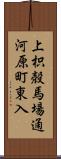 上枳殻馬場通
河原町東入